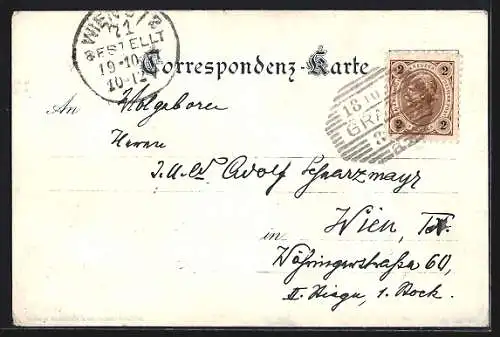 WIEN
71
BESTELLT
19·10
10-12
Correspondenz-Karte
2 2
18 10
GRA
8
2 2
An Wolgeboren
Herrn
J.U.Dr Adolf Schwarzmayr
Wien, IX.
in
Währingerstraße 60,
II. Stiege, 1. Stock.